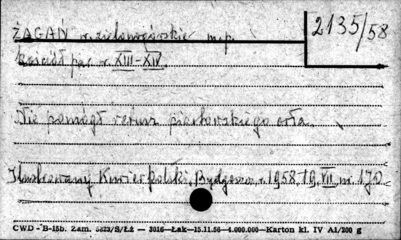 ŻAGAŃ w. zielonogórskie m.p. 2135/58
Kościół par. w. XIII-XIV.
Nie pomógł rewers piastowskiego orła.
Ilustrowany Kurier Polski, Bydgoszcz, r. 1958, 19. VII, nr. 170
CWD - B-15b. Zam. 5823/S/Łż — 3016—Łak—15.11.56—4.000.000—Karton kl. IV A1/200 g